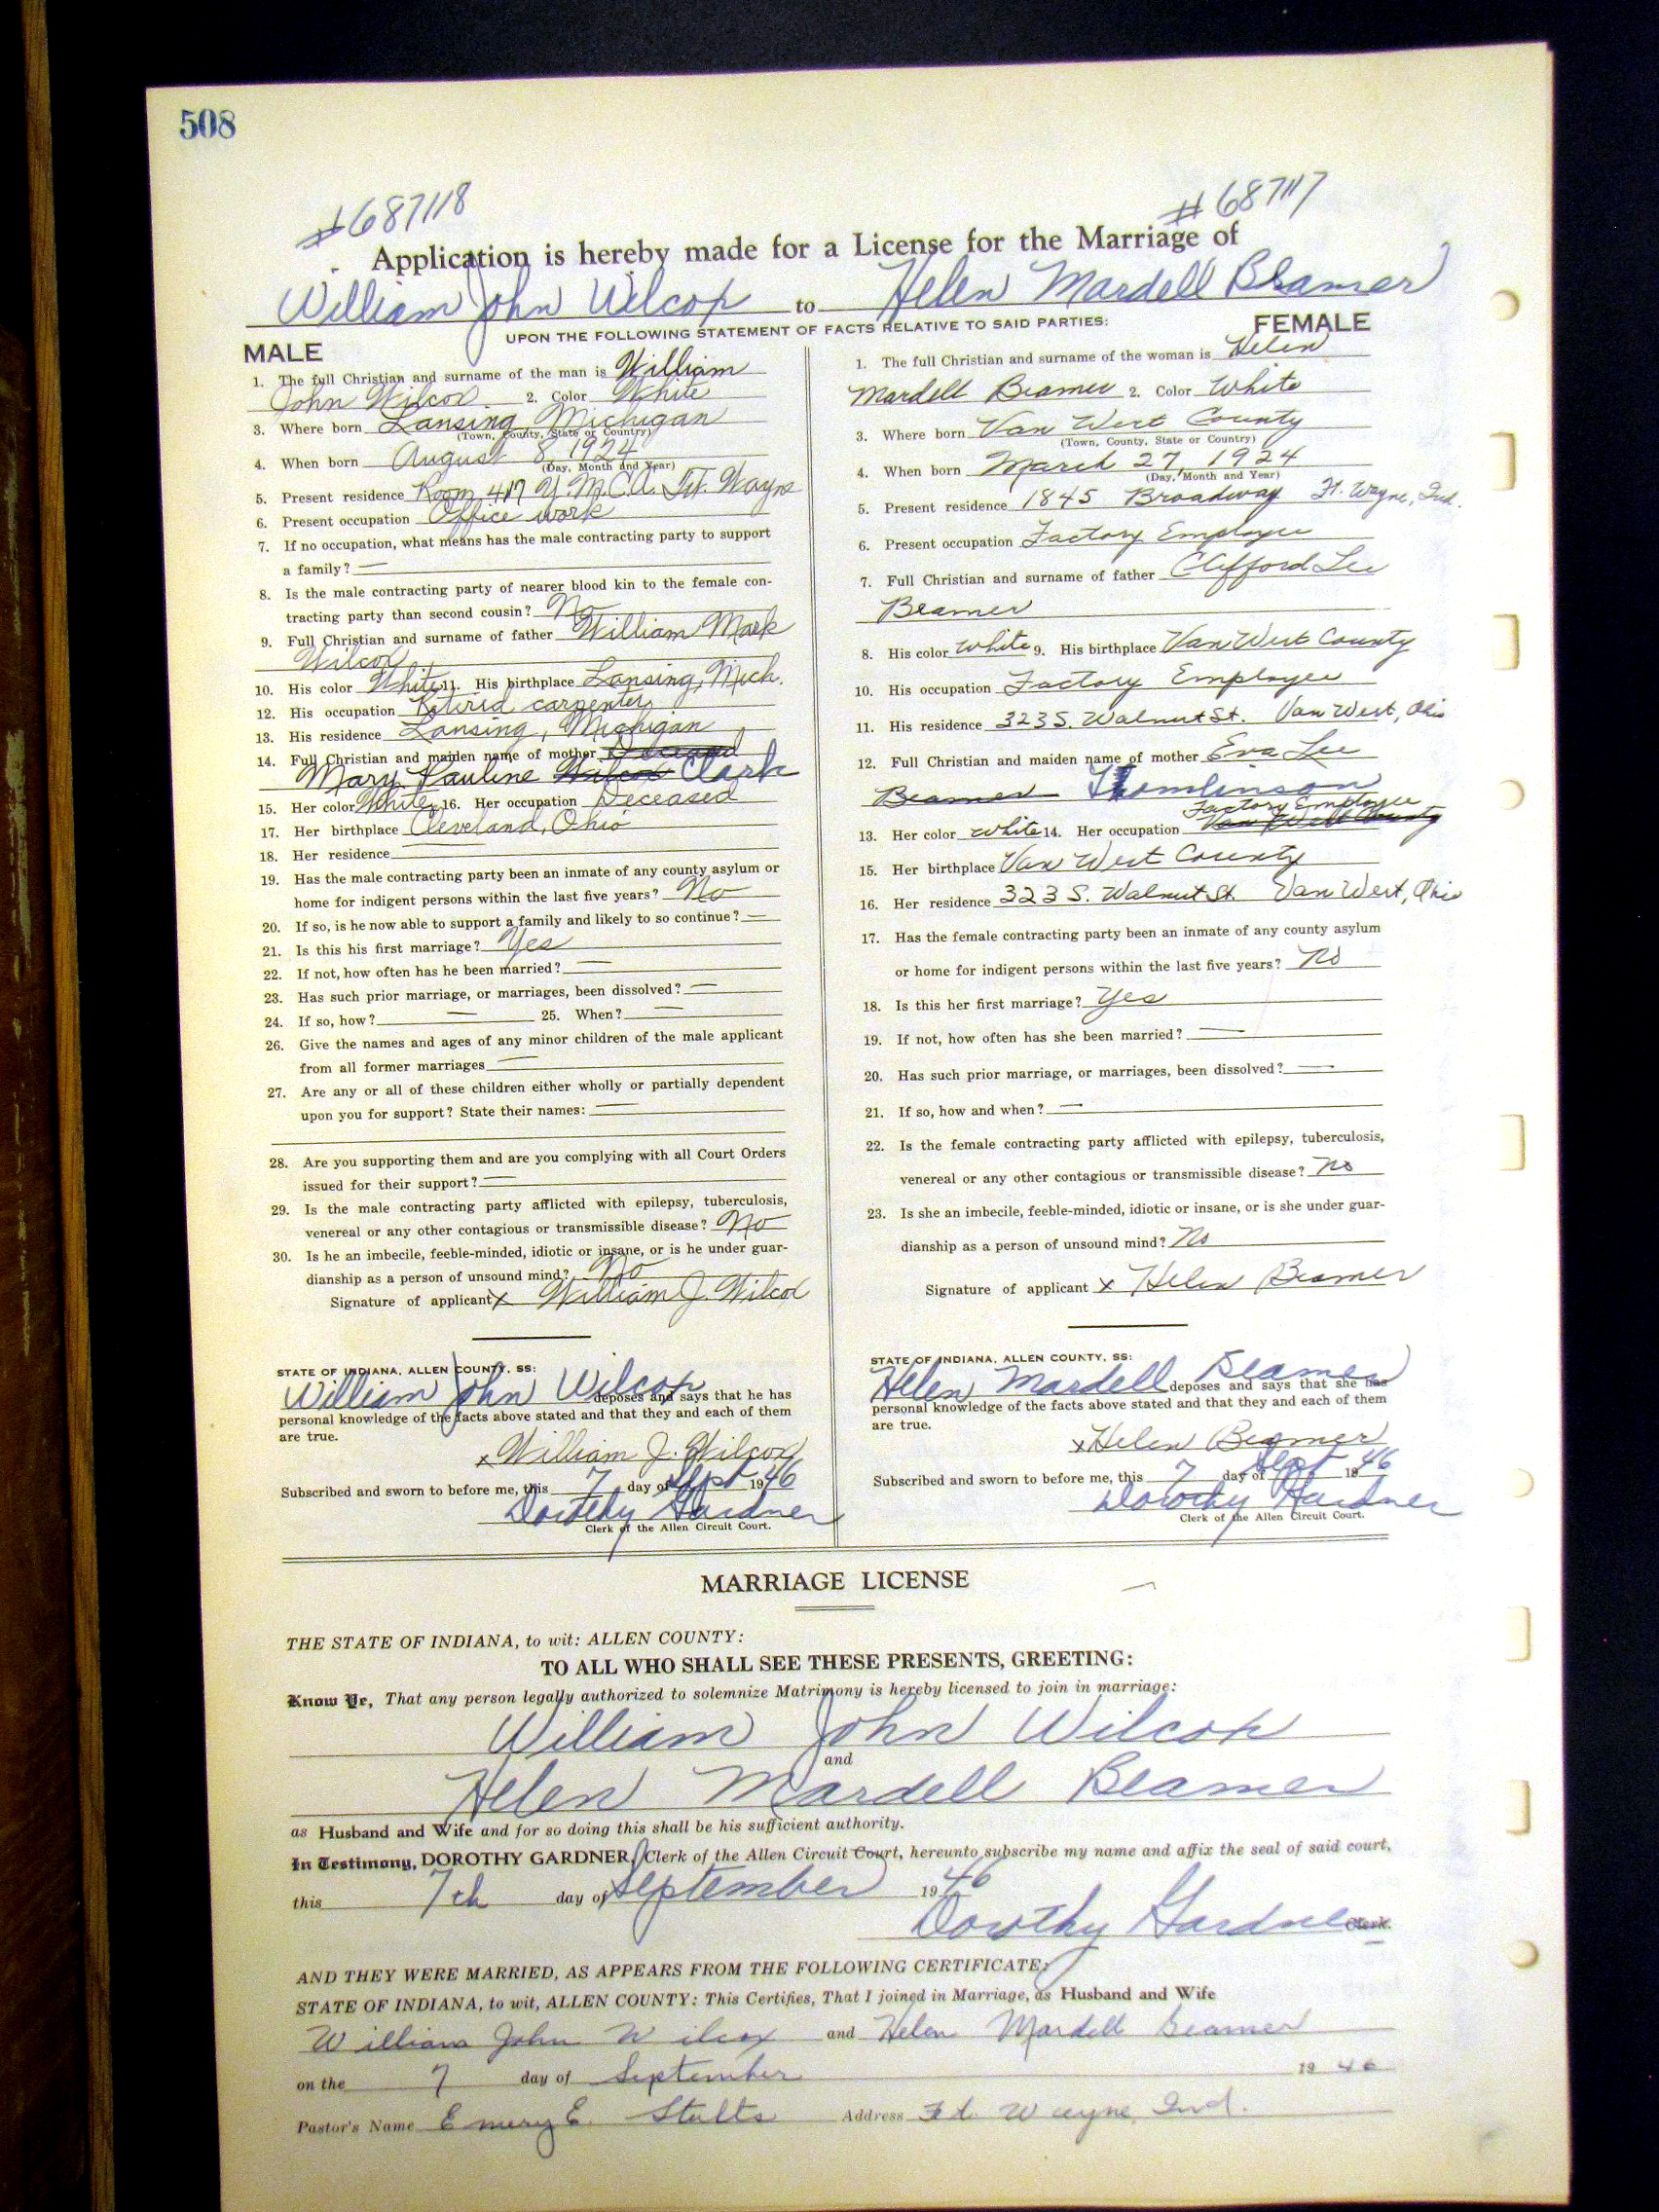 508
#687118 #687117
Application is hereby made for a License for the Marriage of
William John Wilcox to Helen Mardell Beamer
UPON THE FOLLOWING STATEMENT OF FACTS RELATIVE TO SAID PARTIES:
MALE
1. The full Christian and surname of the man is William
John Wilcox 2. Color White
3. Where born Lansing, Michigan
(Town, County, State or Country)
4. When born August 8, 1924
(Day, Month and Year)
5. Present residence Room 417 Y.M.C.A. Ft. Wayne
6. Present occupation Office work
7. If no occupation, what means has the male contracting party to support
a family? —
8. Is the male contracting party of nearer blood kin to the female con-
tracting party than second cousin? No
9. Full Christian and surname of father William Mark
Wilcox
10. His color White 11. His birthplace Lansing, Mich.
12. His occupation Retired carpenter
13. His residence Lansing, Michigan
14. Full Christian and maiden name of mother Deceased
Mary Pauline Wilcox Clark
15. Her color White 16. Her occupation Deceased
17. Her birthplace Cleveland, Ohio
18. Her residence
19. Has the male contracting party been an inmate of any county asylum or
home for indigent persons within the last five years? No
20. If so, is he now able to support a family and likely to so continue? —
21. Is this his first marriage? Yes
22. If not, how often has he been married? —
23. Has such prior marriage, or marriages, been dissolved? —
24. If so, how? — 25. When? —
26. Give the names and ages of any minor children of the male applicant
from all former marriages —
27. Are any or all of these children either wholly or partially dependent
upon you for support? State their names: —
28. Are you supporting them and are you complying with all Court Orders
issued for their support? —
29. Is the male contracting party afflicted with epilepsy, tuberculosis,
venereal or any other contagious or transmissible disease? No
30. Is he an imbecile, feeble-minded, idiotic or insane, or is he under guar-
dianship as a person of unsound mind? No
Signature of applicant x William J. Wilcox
STATE OF INDIANA, ALLEN COUNTY, SS:
William John Wilcox deposes and says that he has
personal knowledge of the facts above stated and that they and each of them
are true.
x William J. Wilcox
Subscribed and sworn to before me, this 7 day of Sept 1946
Dorothy Gardner
Clerk of the Allen Circuit Court.
FEMALE
1. The full Christian and surname of the woman is Helen
Mardell Beamer 2. Color White
3. Where born Van Wert County
(Town, County, State or Country)
4. When born March 27, 1924
(Day, Month and Year)
5. Present residence 1845 Broadway Ft. Wayne, Ind.
6. Present occupation Factory Employee
7. Full Christian and surname of father Clifford Lee
Beamer
8. His color White 9. His birthplace Van Wert County
10. His occupation Factory Employee
11. His residence 323 S. Walnut St. Van Wert, Ohio
12. Full Christian and maiden name of mother Eva Lee
Beamer Tomlinson
Factory Employee
13. Her color White 14. Her occupation Van Wert County
15. Her birthplace Van Wert County
16. Her residence 323 S. Walnut St. Van Wert, Ohio
17. Has the female contracting party been an inmate of any county asylum
or home for indigent persons within the last five years? No
18. Is this her first marriage? Yes
19. If not, how often has she been married? —
20. Has such prior marriage, or marriages, been dissolved? —
21. If so, how and when? —
22. Is the female contracting party afflicted with epilepsy, tuberculosis,
venereal or any other contagious or transmissible disease? No
23. Is she an imbecile, feeble-minded, idiotic or insane, or is she under guar-
dianship as a person of unsound mind? No
Signature of applicant x Helen Beamer
STATE OF INDIANA, ALLEN COUNTY, SS:
Helen Mardell Beamer deposes and says that she has
personal knowledge of the facts above stated and that they and each of them
are true.
x Helen Beamer
Subscribed and sworn to before me, this 7 day of Sept 1946
Dorothy Gardner
Clerk of the Allen Circuit Court.
MARRIAGE LICENSE
THE STATE OF INDIANA, to wit: ALLEN COUNTY:
TO ALL WHO SHALL SEE THESE PRESENTS, GREETING:
Know Ye, That any person legally authorized to solemnize Matrimony is hereby licensed to join in marriage:
William John Wilcox
and
Helen Mardell Beamer
as Husband and Wife and for so doing this shall be his sufficient authority.
In Testimony, DOROTHY GARDNER, Clerk of the Allen Circuit Court, hereunto subscribe my name and affix the seal of said court,
this 7th day of September 1946
Dorothy Gardner Clerk.
AND THEY WERE MARRIED, AS APPEARS FROM THE FOLLOWING CERTIFICATE:
STATE OF INDIANA, to wit, ALLEN COUNTY: This Certifies, That I joined in Marriage, as Husband and Wife
William John Wilcox and Helen Mardell Beamer
on the 7 day of September 1946
Pastor's Name Emery E. Stults Address Ft. Wayne, Ind.